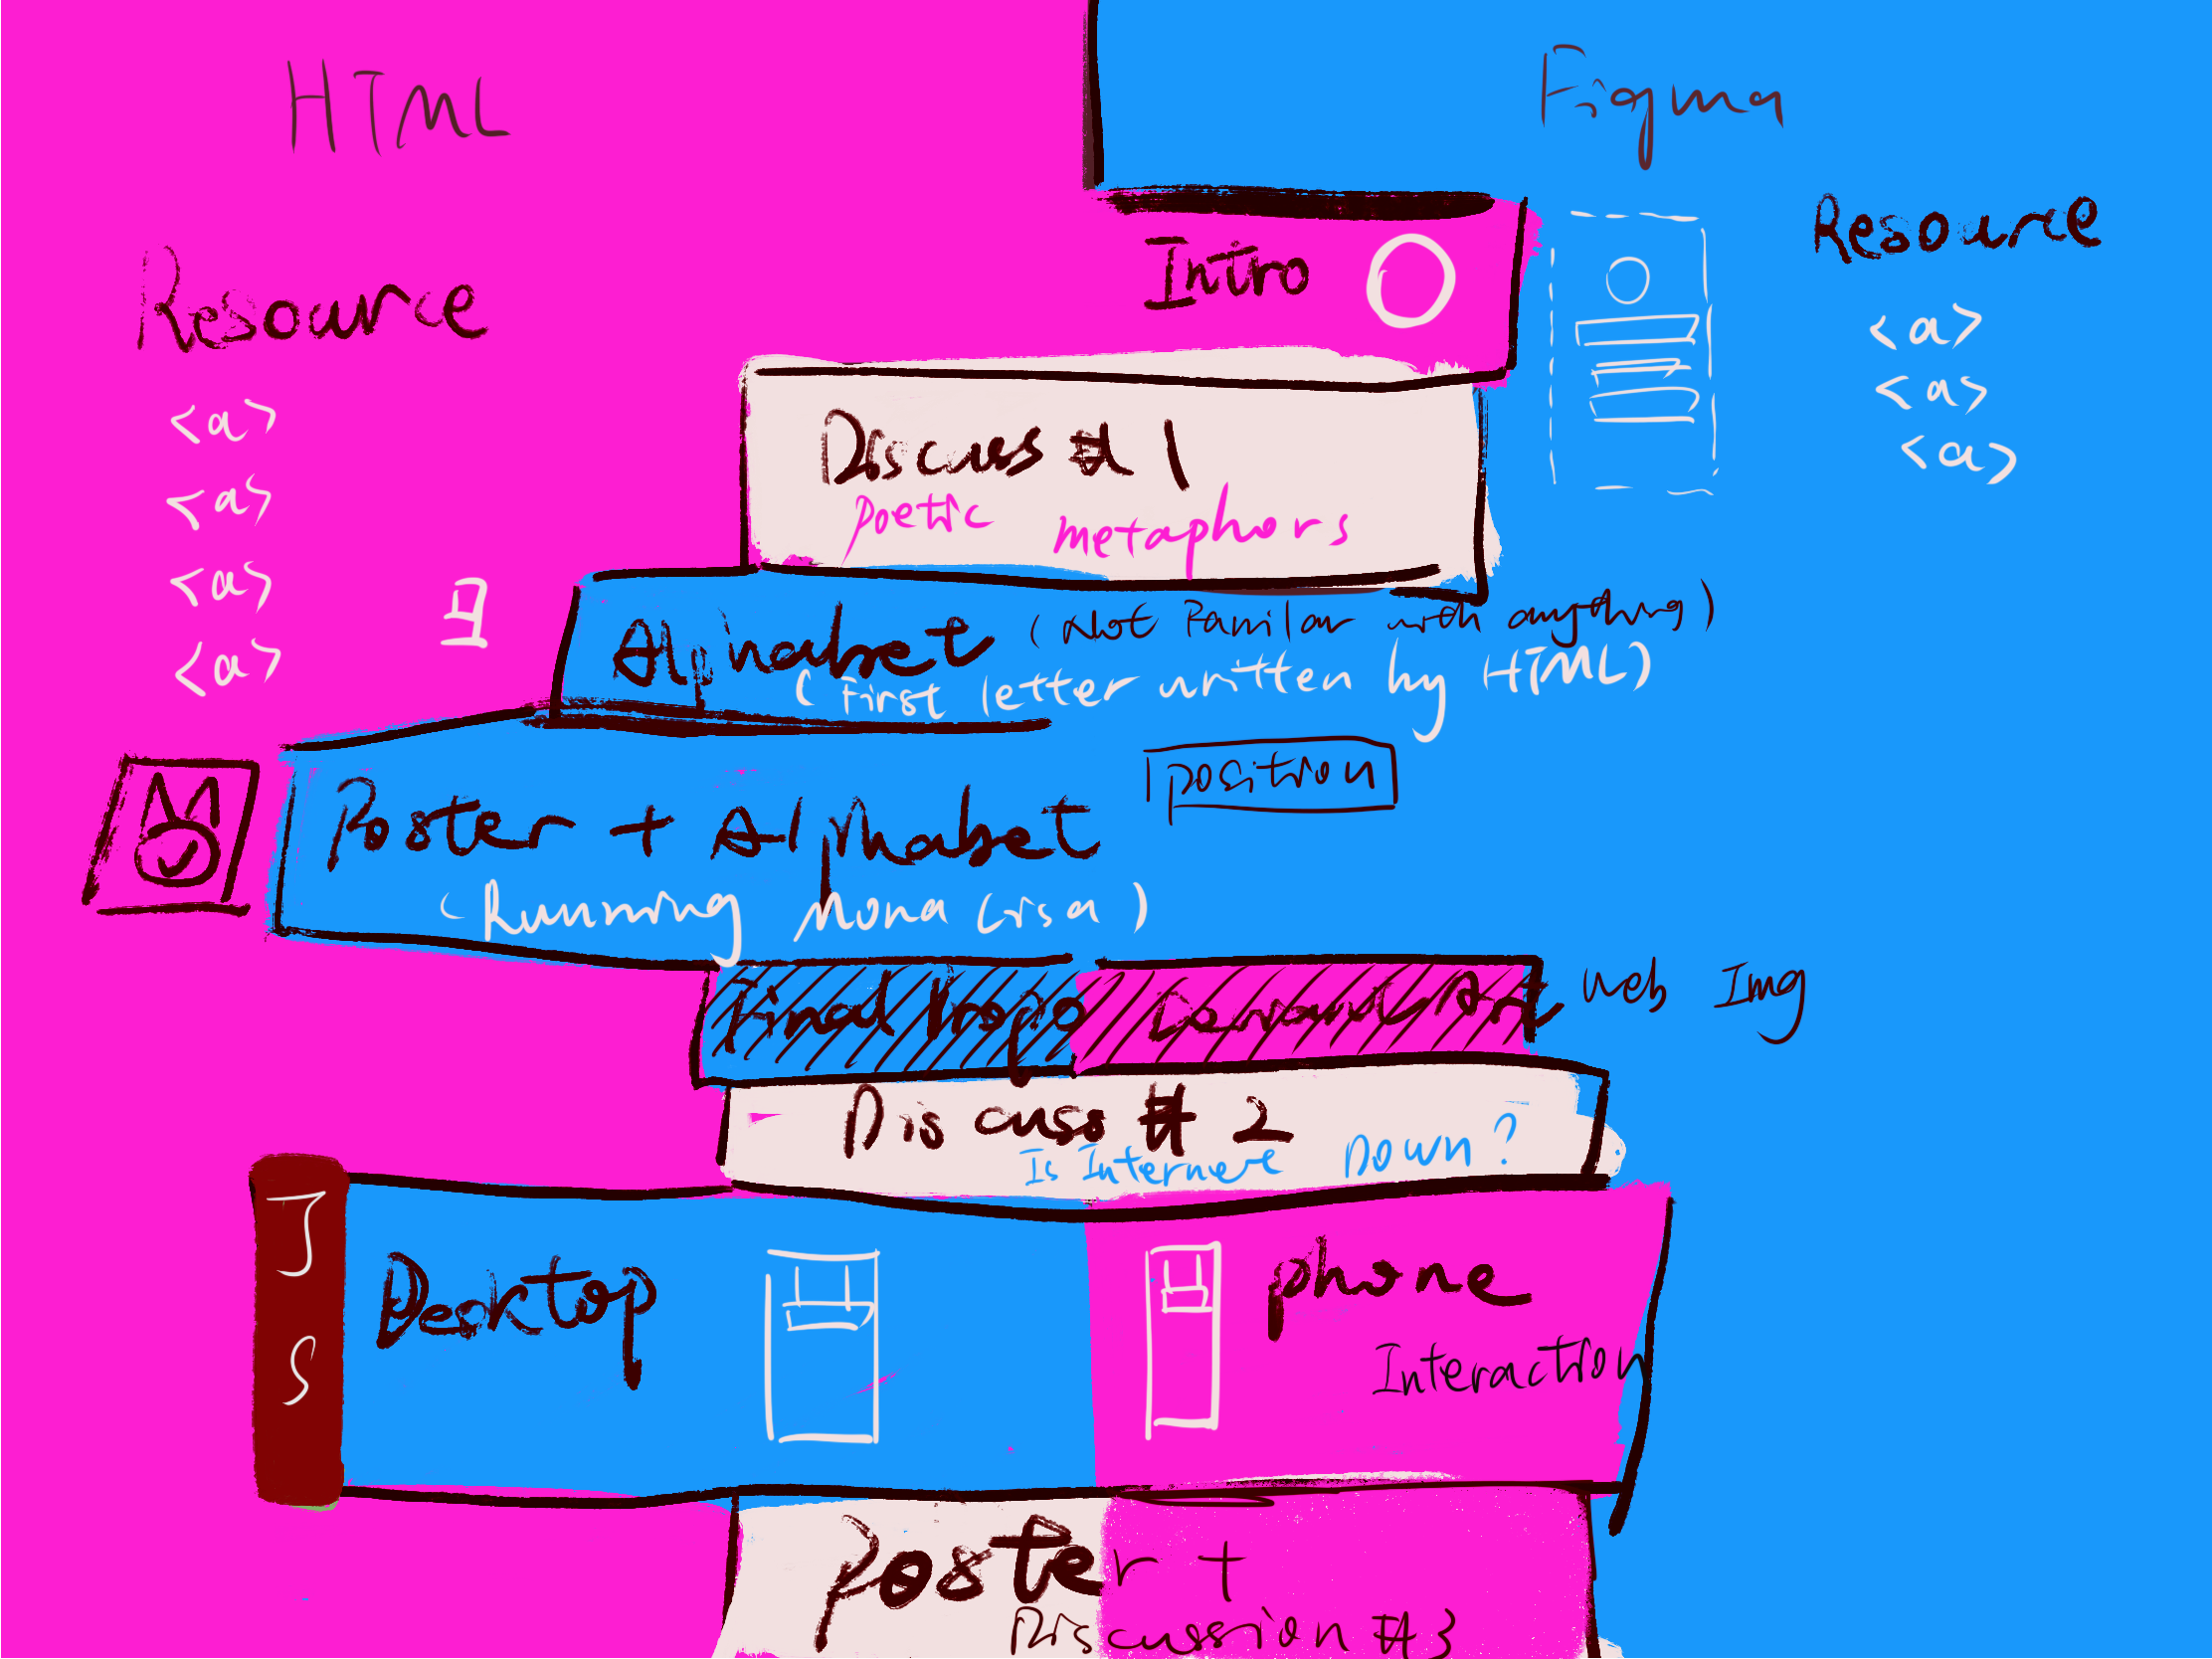 HTML
Figma
Resource
<a>
<a>
<a>
<a>
Resource
<a>
<a>
<a>
Intro
Discuss #1
Poetic metaphors
Alphabet (Not Familar with anything)
(First letter written by HTML)
position
Poster + Alphabet
(Running Mona Lisa)
Final Propo
Art
Web Img
Discuss #2
Is Internet Down?
JS
Desktop
phone
Interaction
Poster +
Discussion #3